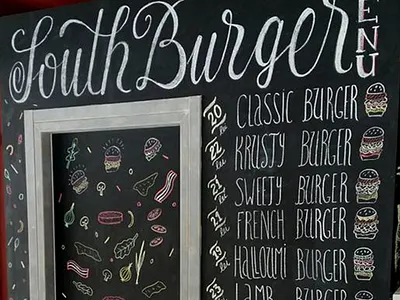 South Burger
MENU
20 Classic BURGER
22 KRUSTY BURGER
21 SWEETY BURGER
21 FRENCH BURGER
19 HALLOUMI BURGER
23 LAMB BURGER